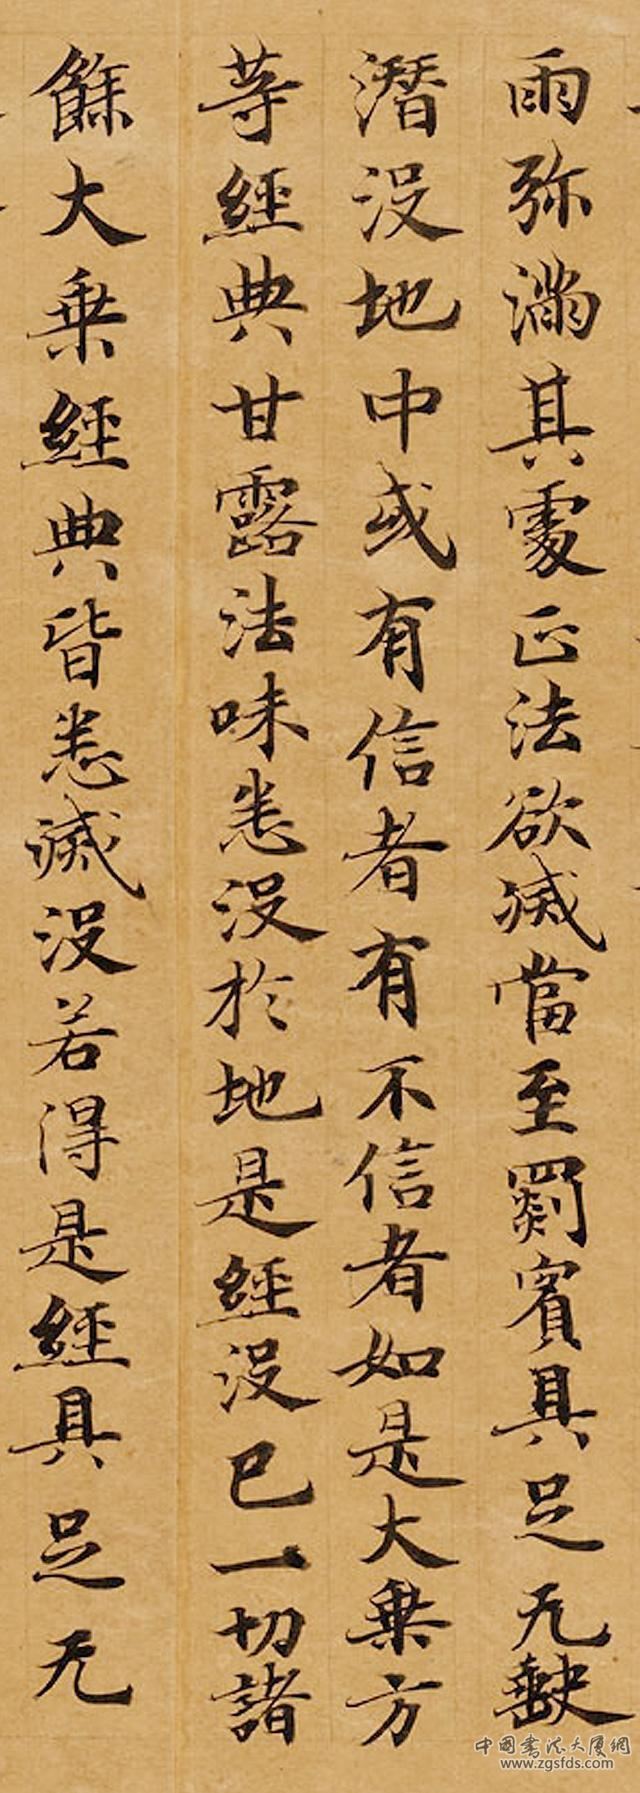 雨弥滿其處正法欲滅當至罽賓具足无缺
潛没地中或有信者有不信者如是大乗方
等經典甘露法味悉没於地是經没已一切諸
餘大乗經典皆悉滅没若得是經具足无
中國書法大厦網
www.zgsfds.com